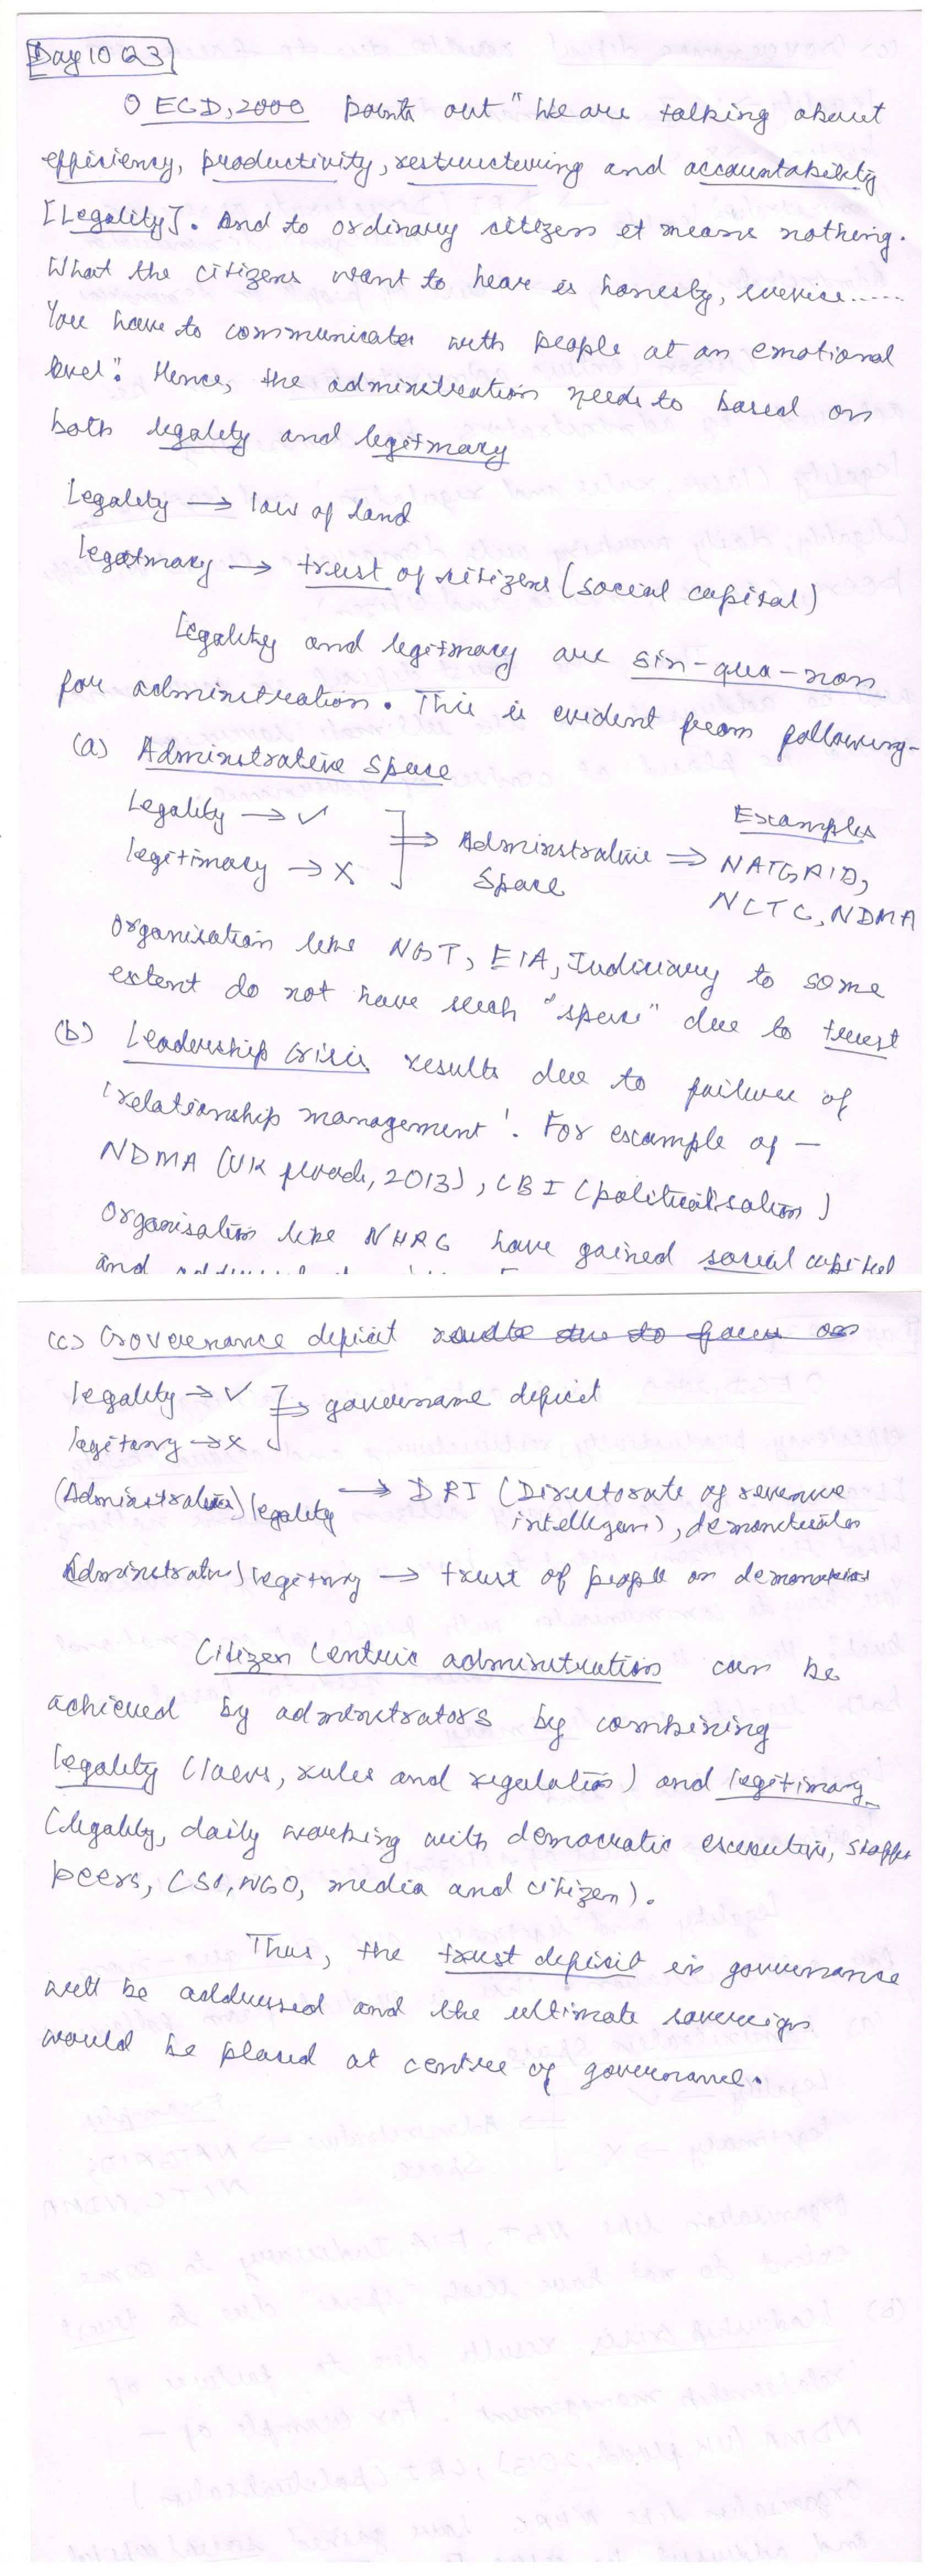 Day 10 Q3
OECD, 2000 points out "We are talking about
efficiency, productivity, restructuring and accountability
[Legality]. And to ordinary citizens it means nothing.
What the citizens want to hear is honesty, service......
You have to communicate with people at an emotional
level". Hence, the administration needs to based on
both legality and legitmacy
Legality → law of land
legitmacy → trust of citizens (social capital)
Legality and legitmacy are sin-qua-non
for administration. This is evident from following-
(a) Administrative Space
Legality → ✓
legitimacy → X
⇒ Administrative Space ⇒
Examples
NATGRID,
NCTC, NDMA
Organisation like NGT, EIA, Judiciary to some
extent do not have such "space" due to trust
(b) Leadership Crisis results due to failure of
'relationship management'. For example of –
NDMA (UK floods, 2013), CBI (politicalisation)
Organisation like NHRC have gained social capital
and
(c) Governance deficit results due to focus on
legality → ✓
legitmacy → x
⇒ governance deficit
(Administrative) legality → DRI (Directorate of revenue
intelligence), demonetisation
(Administrative) legitmacy → trust of people on demonetisation
Citizen Centric administration can be
achieved by administrators by combining
legality (laws, rules and regulation) and legitimacy
(legality, daily working with democratic executive, staffs
peers, CSO, NGO, media and citizen).
Thus, the trust deficit in governance
will be addressed and the ultimate sovereign
would be placed at centre of governance.